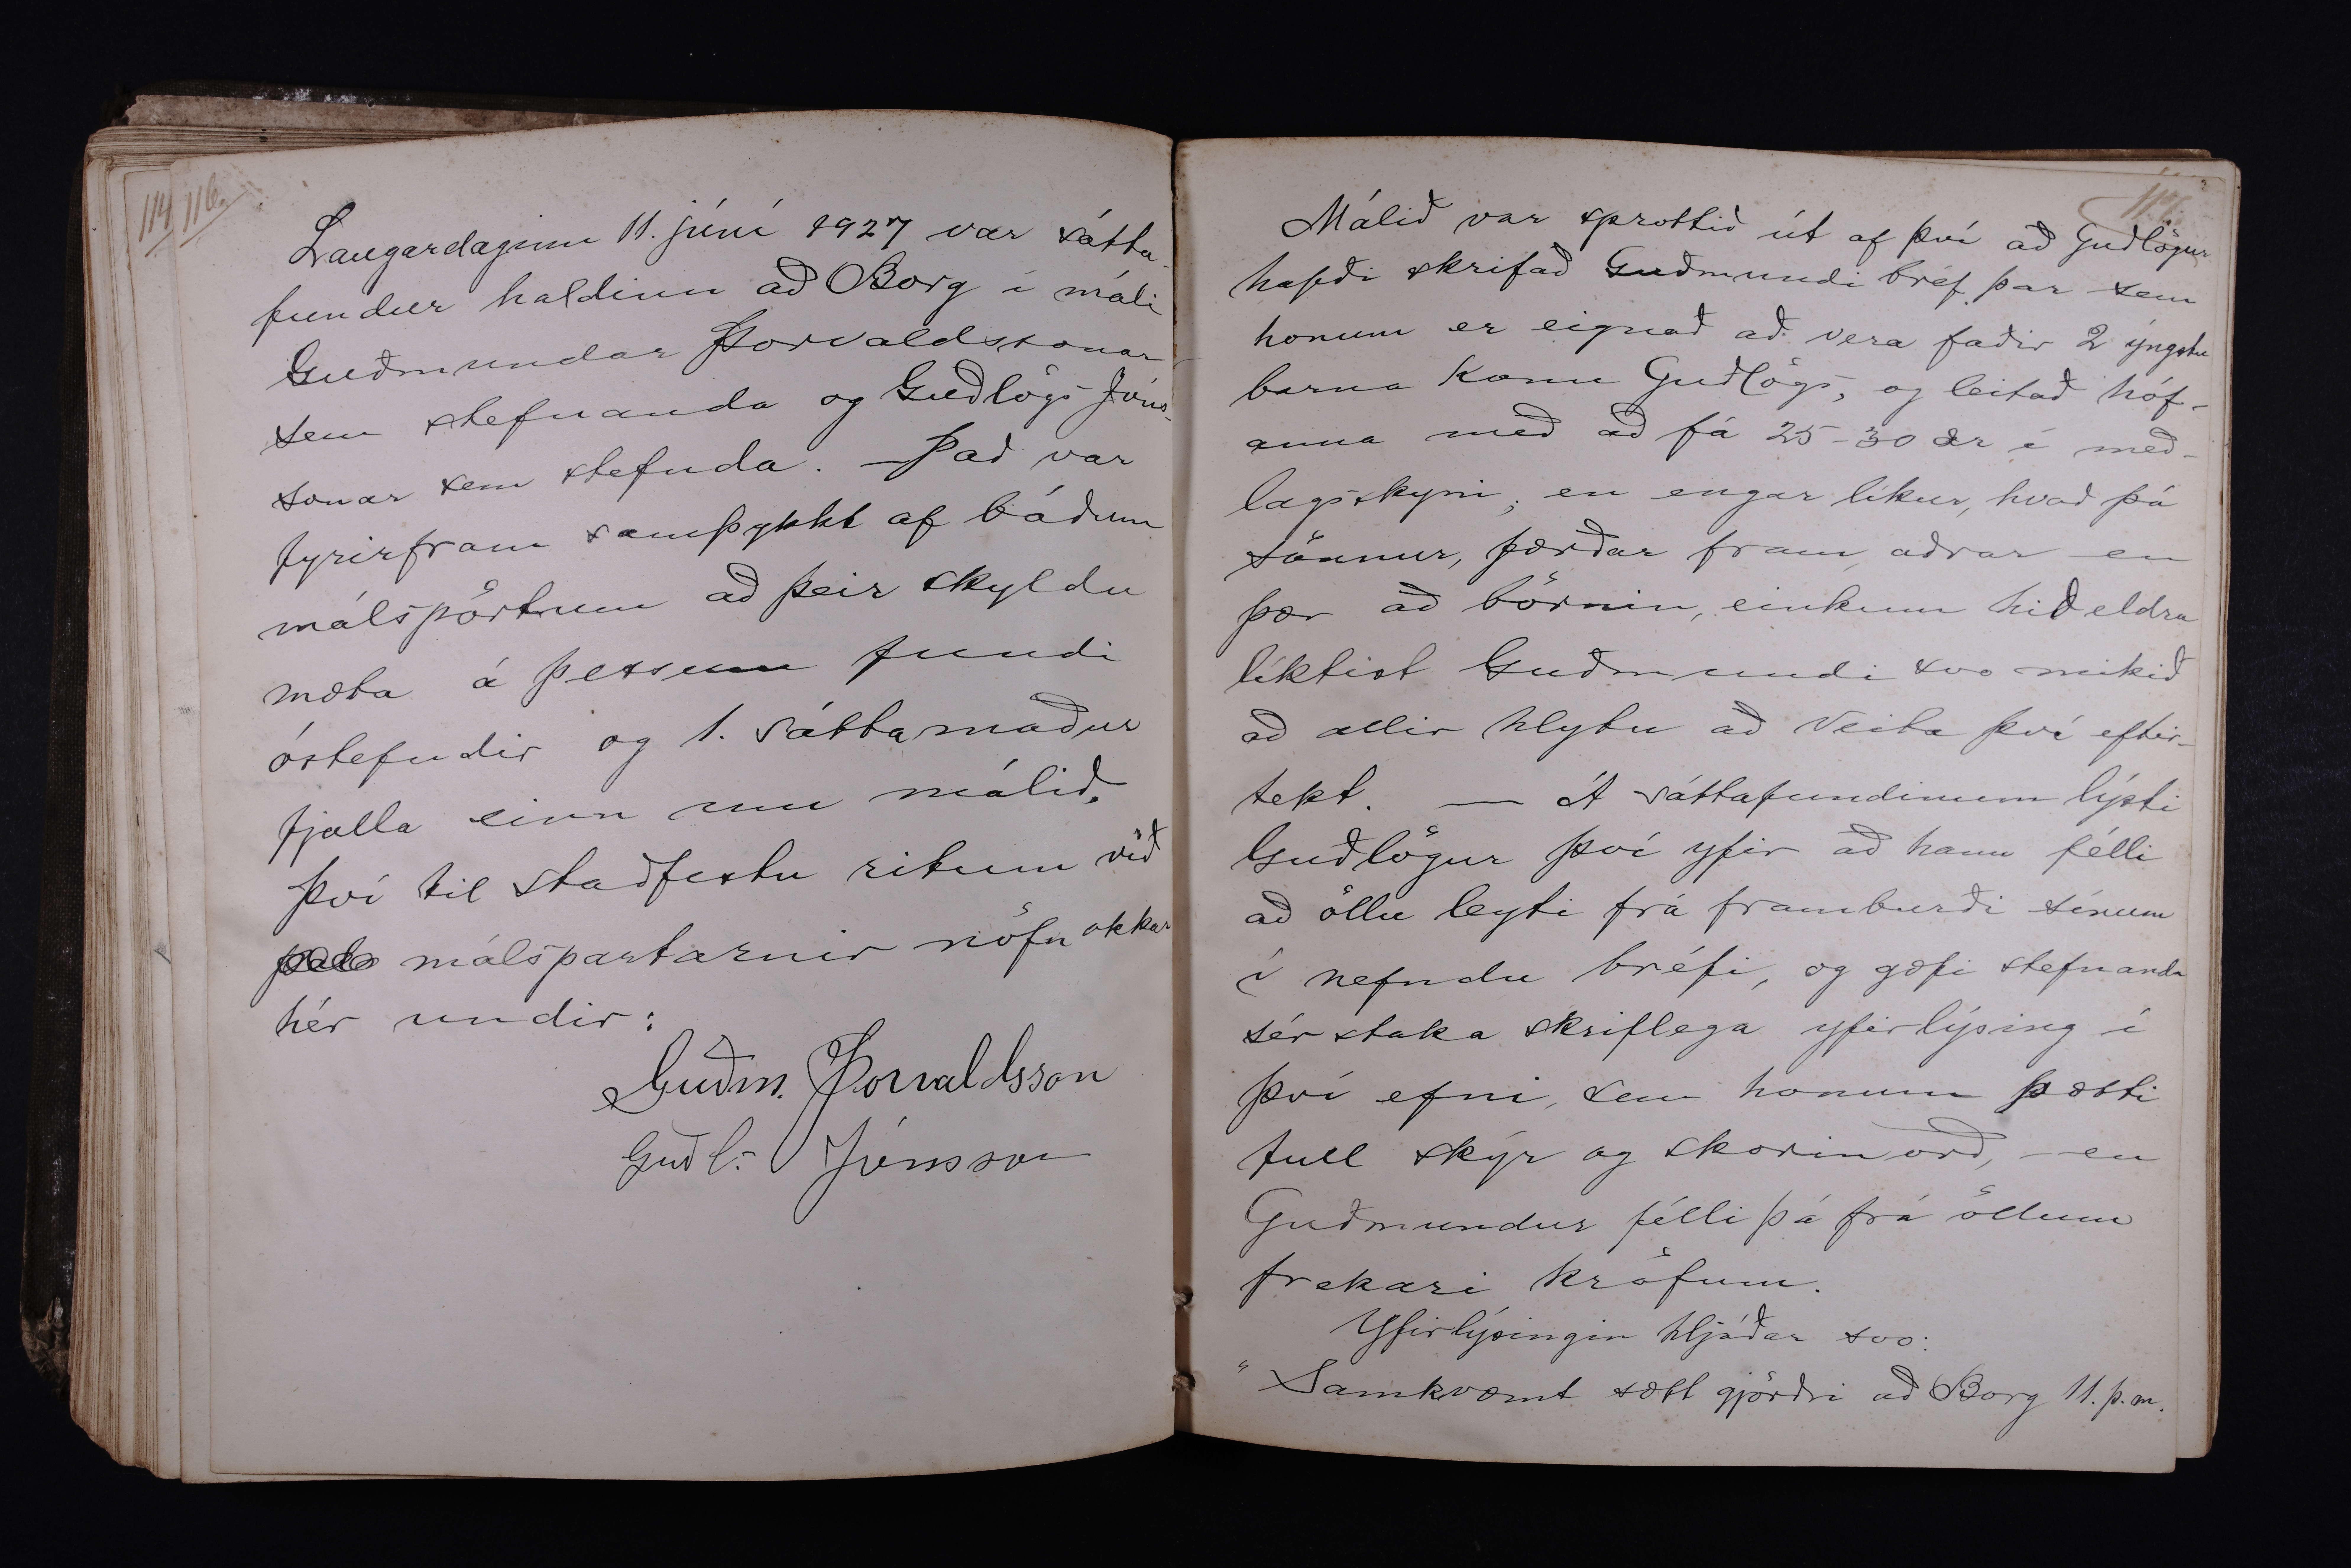 114 116
Laugardaginn 11. júní 1927 var sátta-
fundur haldinn að Borg í máli
Guðmundar Þorvaldssonar
sem stefnanda og Guðlögs Jóns-
sonar sem stefnda. – Það var
fyrirfram samþykkt af báðum
málspörtum að þeir skyldu
mæta á þessum fundi
óstefndir og 1. sáttamaður
fjalla einn um málið.
Því til staðfestu ritum við
málspartarnir nöfn okkar
hér undir:
Guðm. Þorvaldsson
Guðl. Jónsson
Málið var sprottið út af því að Guðlögur
hafði skrifað Guðmundi bréf þar sem
honum er eignað að vera faðir 2 yngstu
barna konu Guðlögs, og leitað hóf-
anna með að fá 25-30 ær í með-
lagsskyni; en engar líkur, hvað þá
sönnur, færðar fram aðrar en
þær að börnin, einkum hið eldra
líktist Guðmundi svo mikið
að allir hlytu að veita því eftir-
tekt. — Á sáttafundinum lýsti
Guðlögur því yfir að hann félli
að öllu leyti frá framburði sínum
í nefndu bréfi, og gæfi stefnanda
sérstaka skriflega yfirlýsing í
því efni, sem honum þætti
full skýr og skorinorð, – en
Guðmundur félli þá frá öllum
frekari kröfum.
Yfirlýsingin hljóðar svo:
" Samkvæmt sætt gjörðri að Borg 11. þ. m.